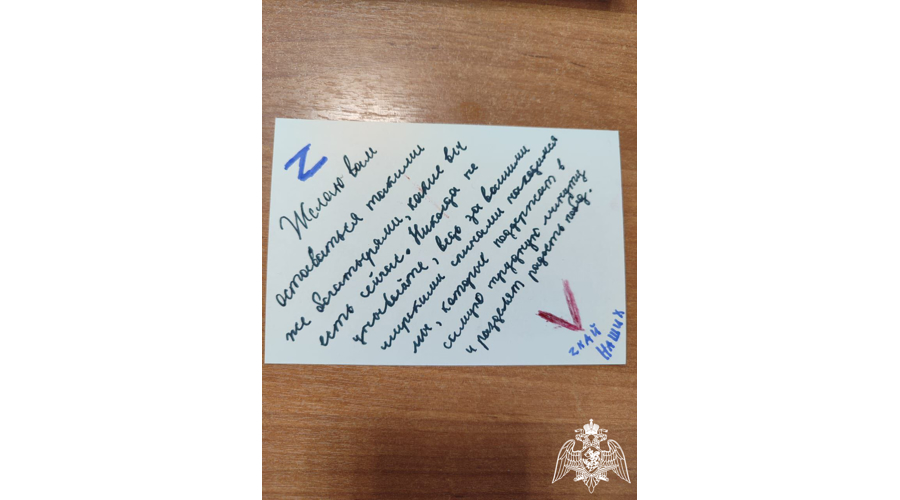 Z
Желаю вам
оставаться такими
же богатырями, какие вы
есть сейчас. Никогда не
унывайте, ведь за вашими
широкими спинами находимся
мы, которые поддержат в
самую трудную минуту
и разделят радость побед.
V
ZНАЙ
НАШИХ